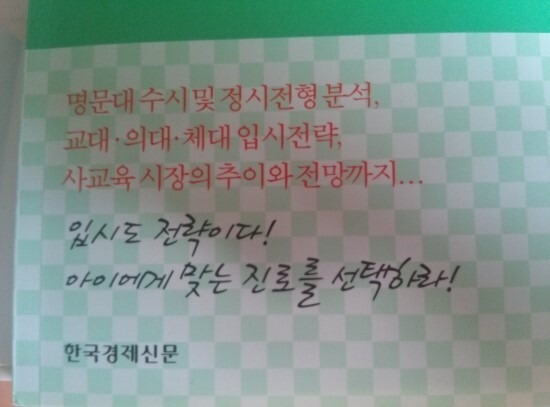 명문대 수시 및 정시전형 분석,
교대·의대·체대 입시전략,
사교육 시장의 추이와 전망까지…
입시도 전략이다!
아이에게 맞는 진로를 선택하라!
한국경제신문